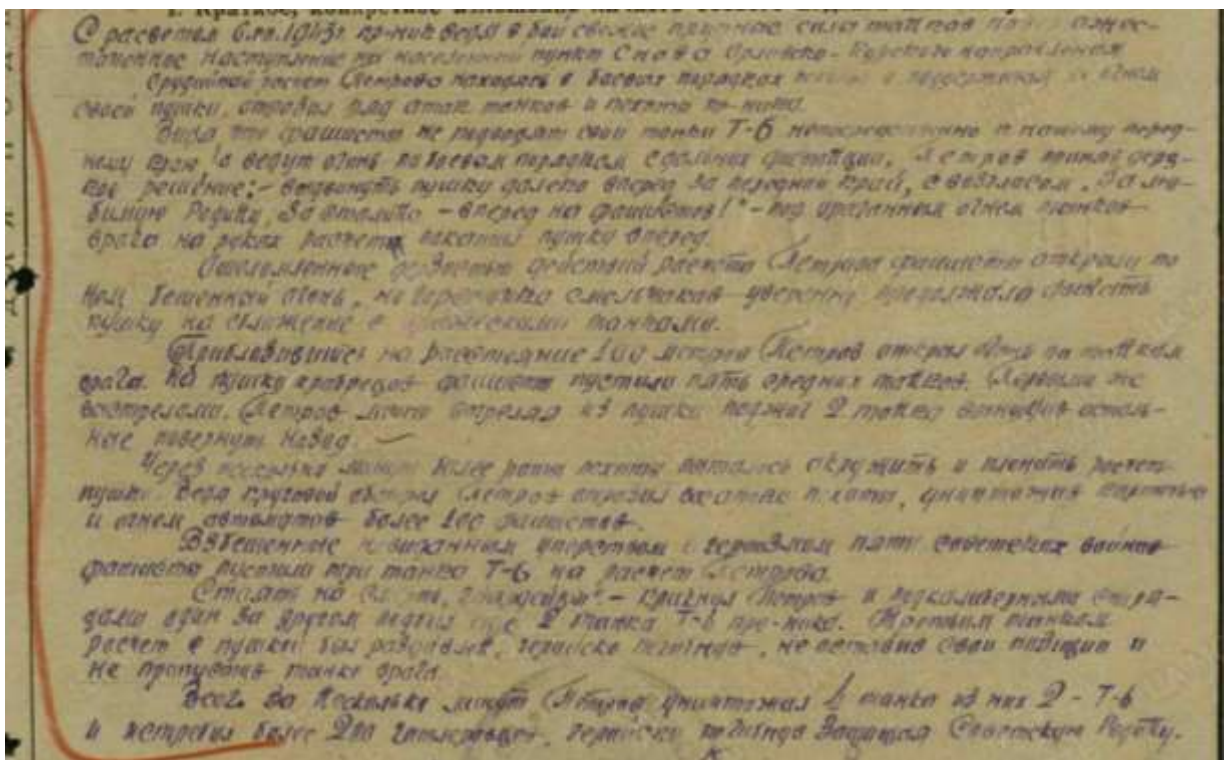 I. Краткое, конкретное изложение
С рассветом 6.VII.1943г пр-ник введя в бой свежие силы танков ожес-
точенное наступление на населенный пункт Снова Орловско-Курском направлении
Орудийный расчет Петрова находясь в боевых порядках пехоты и поддерживая ее огнем
своей пушки, отразил ряд атак танков и пехоты пр-ника.
Видя что фашисты не подводят свои танки Т-6 непосредственно к нашему перед-
нему краю а ведут огонь по боевым порядкам с дальних дистанций, Петров принял дерз-
кое решение:- выдвинуть пушку далеко вперед за передний край, с возгласом "За лю-
бимую Родину, За - вперед на фашистов!" - под ураганным огнем танков
врага на руках расчета покатил пушку вперед.
Ошеломленные дерзостью действий расчета Петрова фашисты открыли по
нем бешенный огонь, но смельчаков уверенно продолжала двигать
пушку на сближение с танками.
Приблизившись на расстояние 100 метров Петров открыл огонь по танкам
врага. На пушку храбрецов фашисты пустили пять средних танков. Первыми же
выстрелами, Петров стреляя из пушки поджег 2 танка осталь-
ные повернуть назад.
Через несколько минут более роты пехоты пыталось окружить и пленить расчет
пушки. Ведя круговой обстрел Петров отразил пехоты, уничтожив картечью
и огнем автоматов более 100 фашистов.
Взбешенные невиданным упорством и героизмом пяти советских воинов
фашисты пустили три танка Т-6 на расчет Петрова.
Стоять на - крикнул Петров и подкалиберными снаря-
дами один за другим еще 2 танка Т-6 пр-ника. Третьим танком
расчет с пушкой был раздавлен, геройски погибнув, не оставив свои позиции и
не пропустив танки врага.
Всего за несколько минут Петров уничтожил 4 танка из них 2 - Т-6
и истребил более 200 гитлеровцев, геройски погибнув Защищая Советскую Родину.